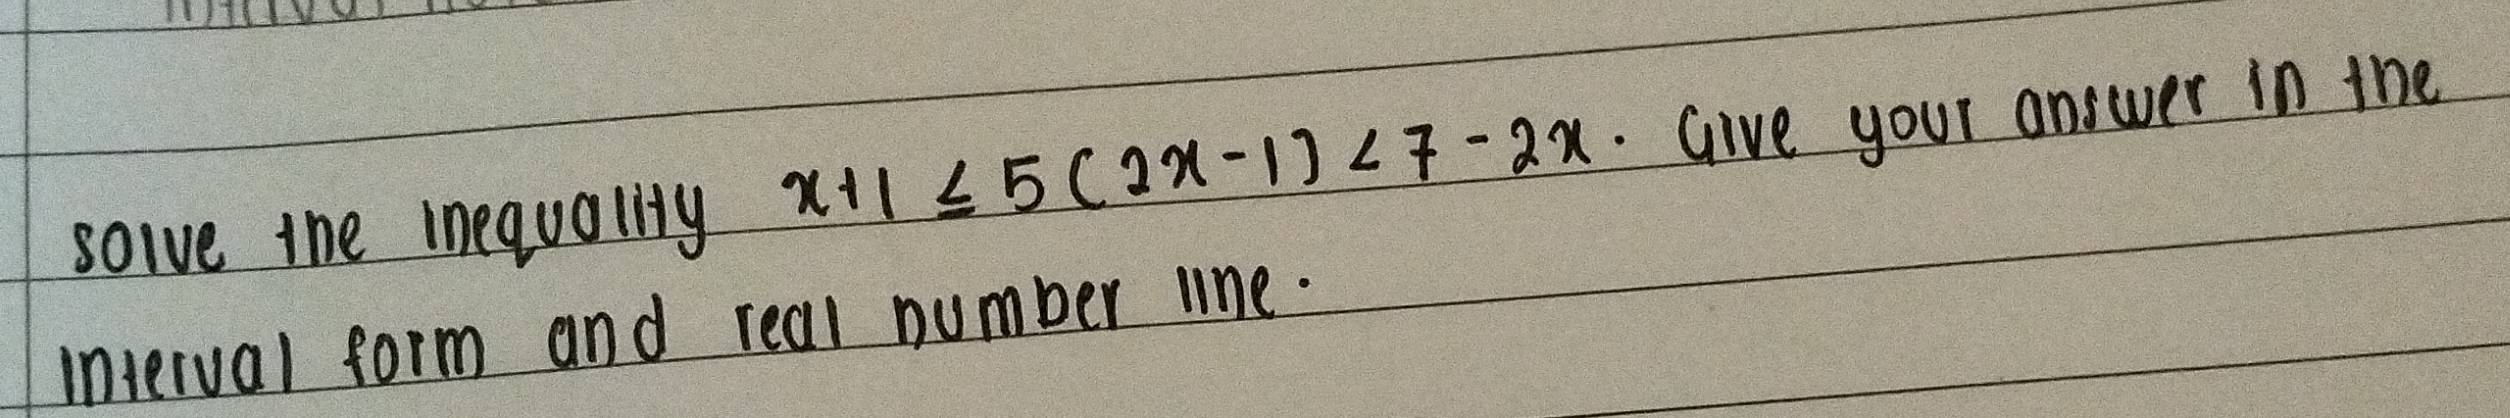 solve the inequality x+1 ≤ 5(2x-1) < 7-2x. Give your answer in the
interval form and real number line.